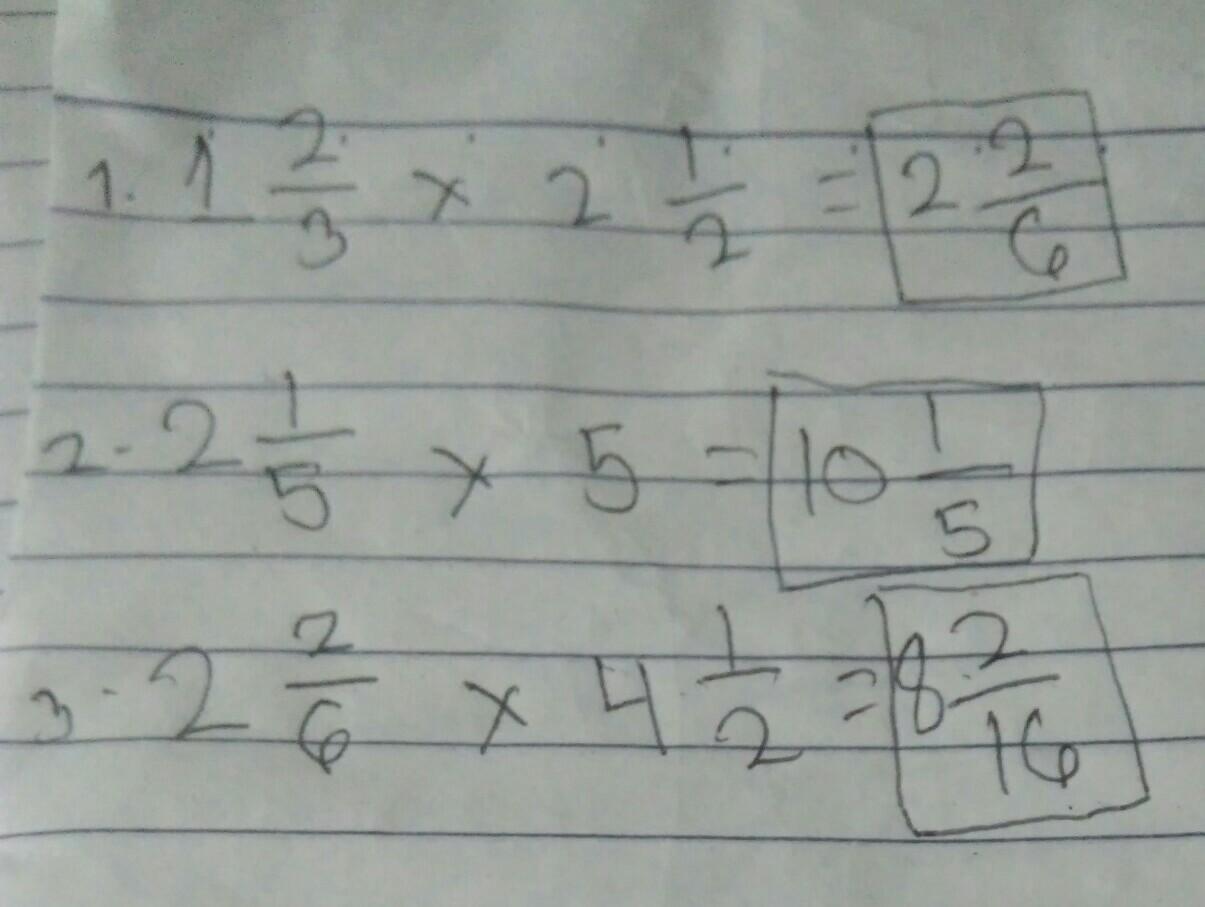 1. 1 2/3 x 2 1/2 = 2 2/6
2. 2 1/5 x 5 = 10 1/5
3. 2 2/6 x 4 1/2 = 8 2/16